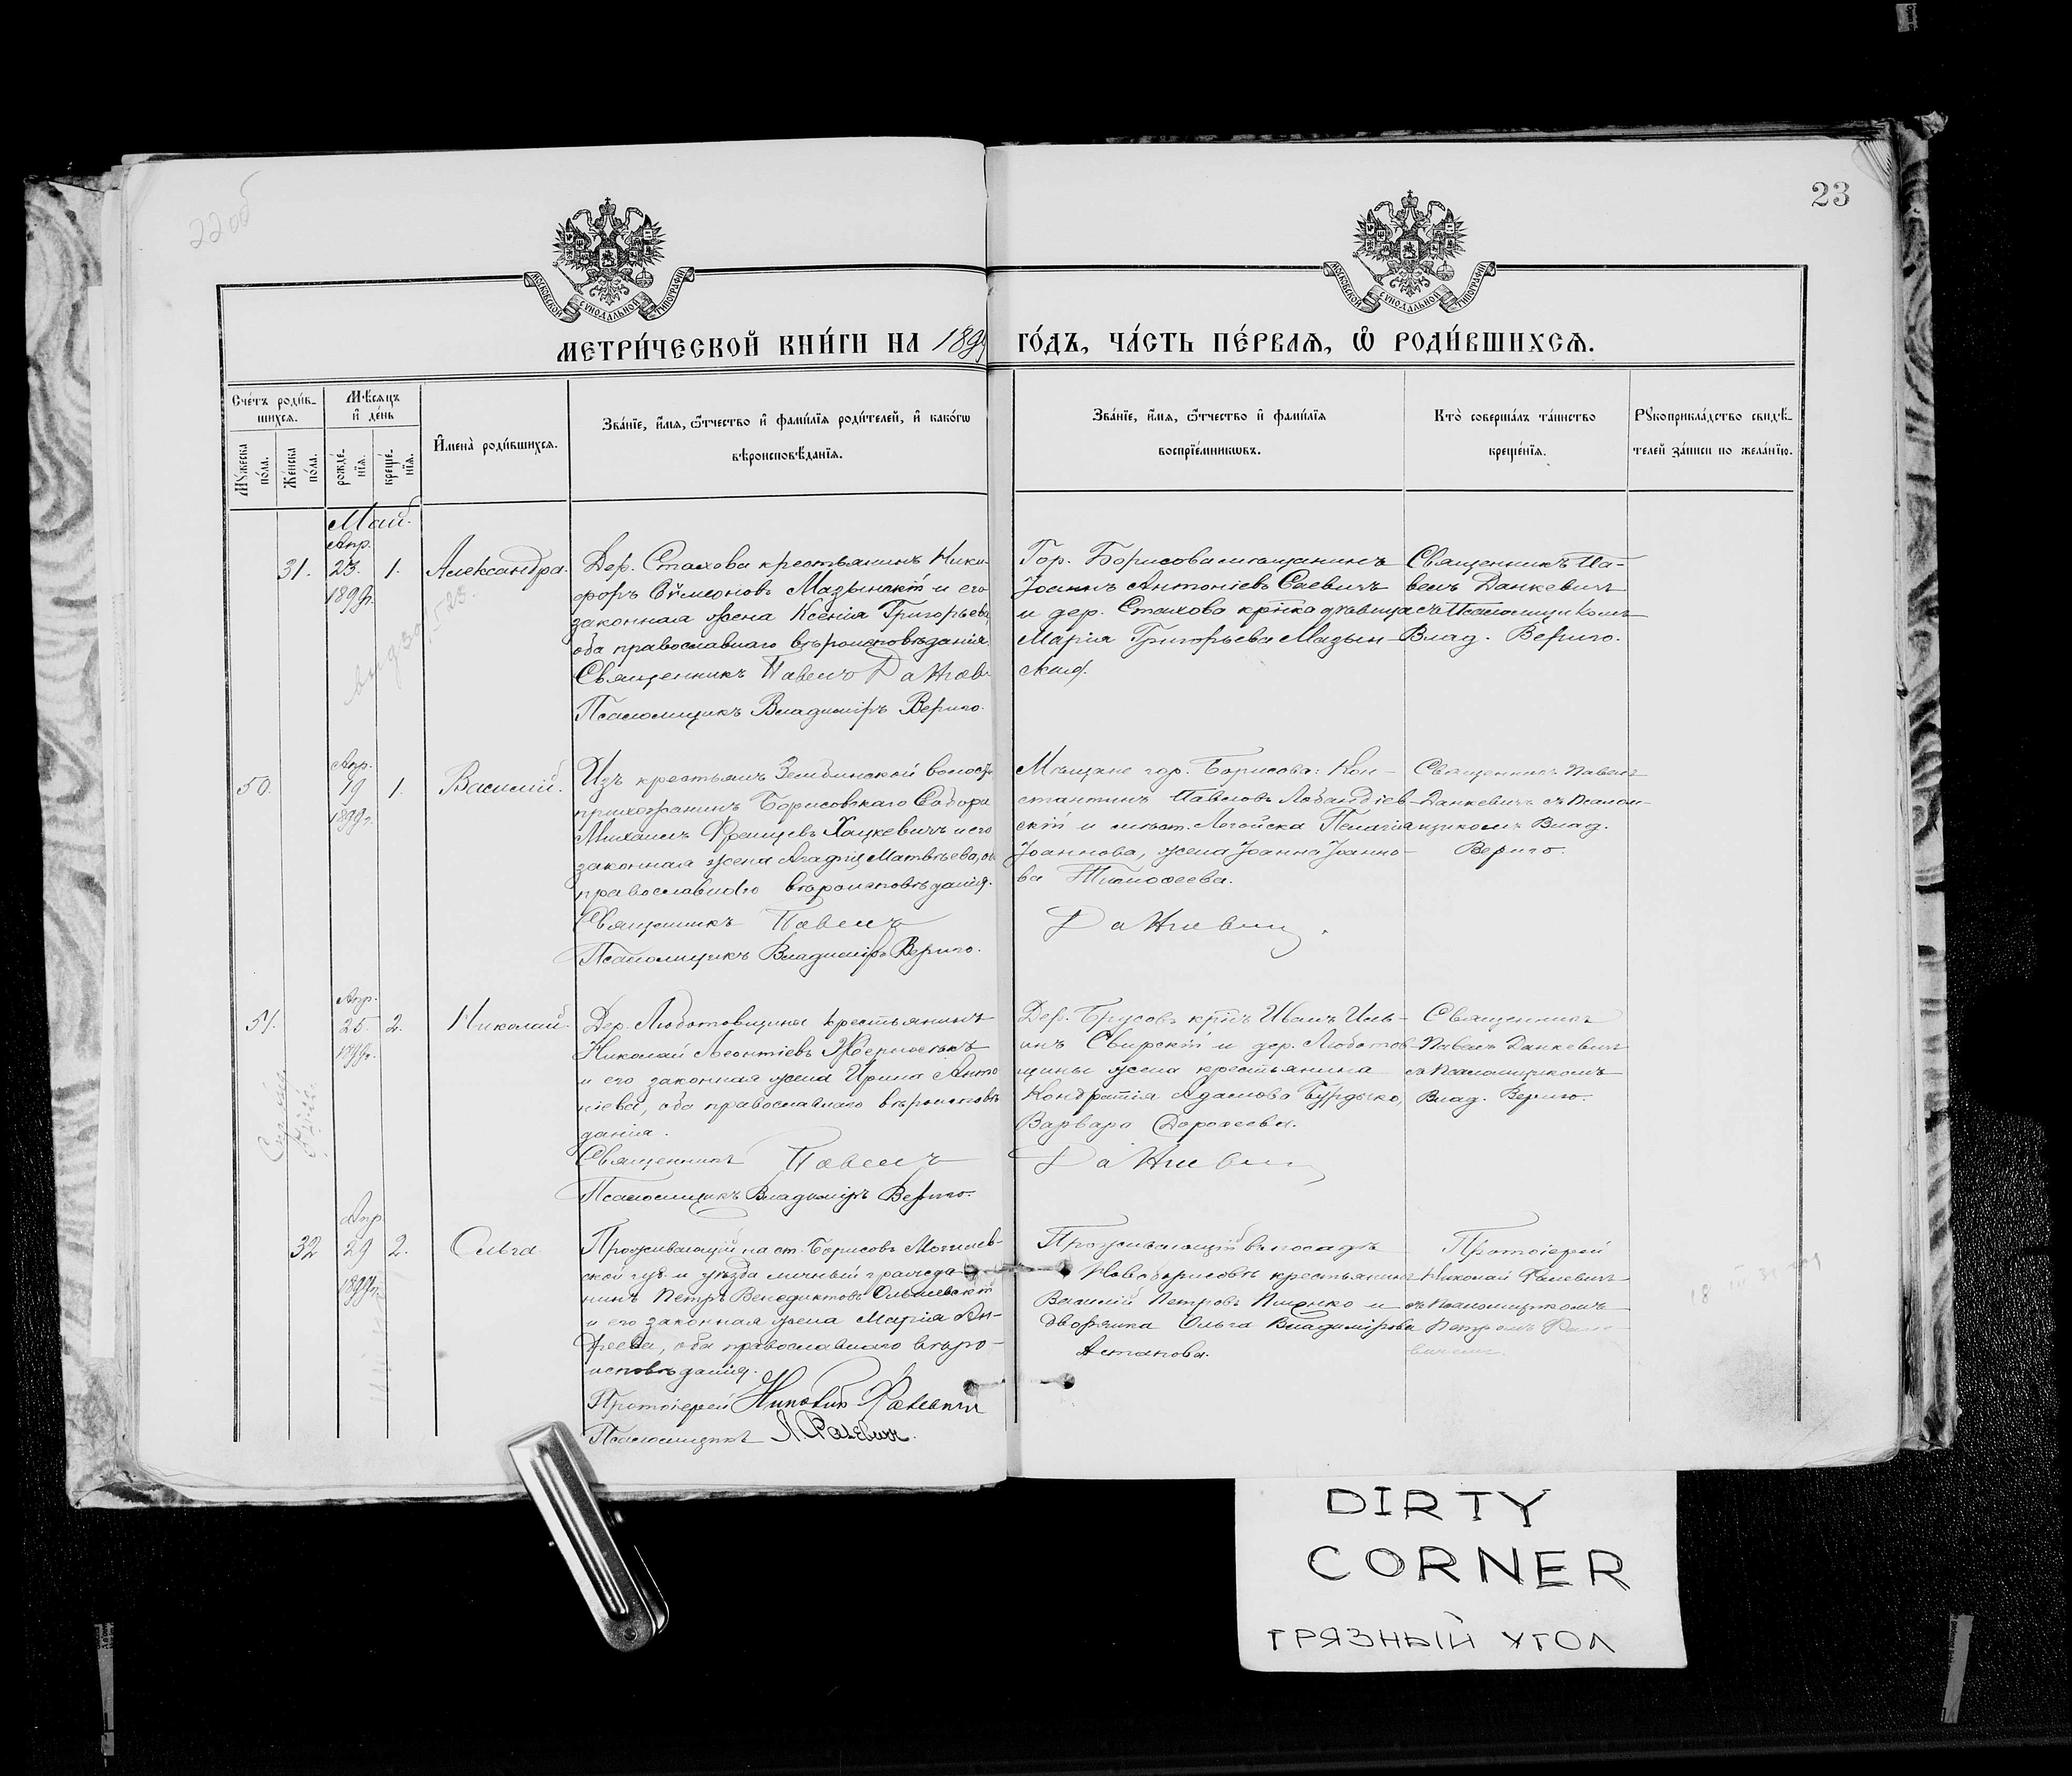 22 об
23
МОСКОВСКОЙ СѴНОДАЛЬНОЙ ТИПОГРАФІИ
МОСКОВСКОЙ СѴНОДАЛЬНОЙ ТИПОГРАФІИ
МЕТРИ́ЧЕСКОЙ КНИ́ГИ НА 1899 ГО́ДЪ, ЧА́СТЬ ПЕ́РВАЯ, Ѿ РОДИ́ВШИХСЯ.
Сче́тъ роди́в-
шихся.
Мꙋжеска по́ла.
Же́нска по́ла.
Мѣ́сяцъ и҆ де́нь
рожде́-
нїя.
креще́-
нїя.
И҆мена̀ роди́вшихся.
Зва́нїе, и҆́мя, ѻ҆́тчество и҆ фами́лїя роди́телей, и҆ како́гѡ
вѣроисповѣ́данїя.
Зва́нїе, и҆́мя, ѻ҆́тчество и҆ фами́лїя
воспрїе́мникѡвъ.
Кто̀ соверша́лъ та́инство
креще́нїя.
Рꙋкоприкла́дство свидѣ́-
телей за́писи по жела́нїю.
Май.
31.
Апр.
23.
1899г.
1.
Александра.
Дер. Стахова крестьянинъ Ники-
форъ Сѵмеоновъ Мазынскій и его
законная жена Ксенія Григорьева,
оба православнаго вѣроисповѣданія.
Священникъ Павелъ Данкев
Псаломщикъ Владиміръ Вериго.
Гор. Борисова мѣщанинъ
Іоаннъ Антоніевъ Саевичъ
и дер. Стахова кр–нка дѣвица
Марія Григорьева Мазын-
ская.
Священникъ Па-
велъ Данкевичъ
съ Псаломщикомъ
Влад. Вериго.
50.
Апр.
19
1899г.
1.
Василій.
Изъ крестьянъ Зембинской волости
прихожанинъ Борисовскаго Собора
Михаилъ Хацкевичъ и его
законная жена Агафія Матвѣева, об
православнаго вѣроисповѣданія.
Священникъ Павелъ
Псаломщикъ Владиміръ Вериго.
Мѣщане гор. Борисова: Кон-
стантинъ Павловъ
скій и мѣст. Логойска Пелагія
Іоаннова, жена Іоанна Іоанно-
ва Тимоѳеева.
Данкевич.
Священникъ Павелъ
Данкевичъ съ Псалом-
щикомъ Влад.
Вериго.
51.
Апр.
25.
1899г.
2.
Николай.
Дер. Любатовщина крестьянинъ
Николай Леонтіевъ
и его законная жена Ирина Анто
ніева, оба православнаго вѣроисповѣ
данія.
Священникъ Павелъ
Псаломщикъ Владиміръ Вериго.
Дер. Брусовъ кр–нъ Иванъ Иль-
инъ Свирскій и дер. Любатов-
щины жена крестьянина
Кондратія Адамова Бурдыко,
Варвара Дороѳеева.
Данкевич
Священникъ
Павелъ Данкевичъ
съ Псаломщикомъ
Влад. Вериго.
32
Апр
29
1899г.
2.
Ольга
Проживающій на ст. Борисовъ Могилев-
ской губ. и уѣзда личный гражда-
нинъ Петръ Венедиктовъ Ольшевскій
и его законная жена Марія Ан-
дреева, оба православнаго вѣро-
исповѣданія.
Протоіерей Николай Фалевич
Псаломщикъ Фалевич.
Проживающій въ посадѣ
Ново-борисовѣ крестьянинъ
Василій Петровъ и
дворянка Ольга Владимірова
Астанова.
Протоіерей
Николай Фалевичъ
съ Псаломщикомъ
Петромъ Фале-
вичемъ.
DIRTY
CORNER
ГРЯЗНЫЙ УГОЛ